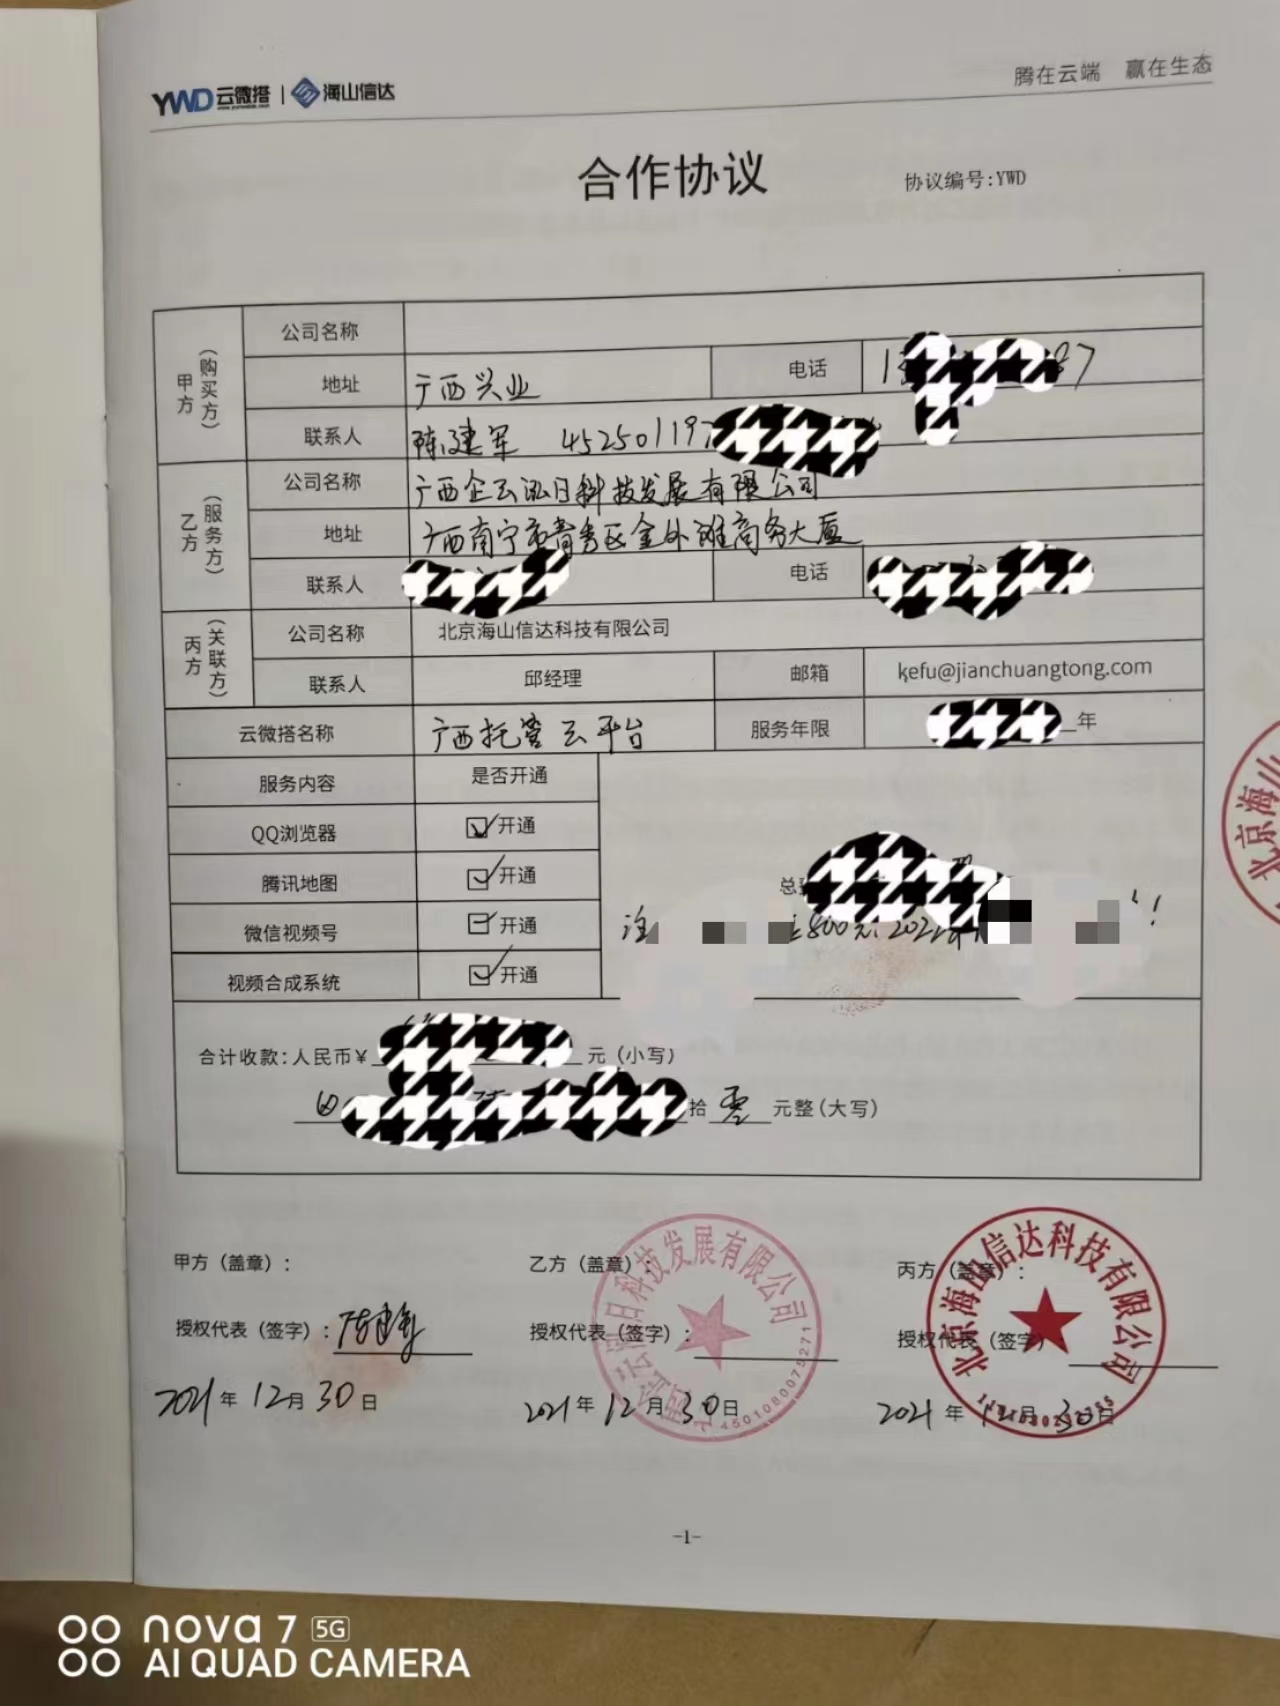 YWD 云微搭 | 海山信达
腾在云端 赢在生态
合作协议
协议编号:YWD
甲方（购买方）
公司名称
地址 广西兴业 电话 1 87
联系人 陈建军 45250119
乙方（服务方）
公司名称 广西企云泓日科技发展有限公司
地址 广西南宁市青秀区金外滩商务大厦
联系人 电话
丙方（关联方）
公司名称 北京海山信达科技有限公司
联系人 邱经理 邮箱 kefu@jianchuangtong.com
云微搭名称 广西托管云平台 服务年限 年
服务内容 是否开通
QQ浏览器 开通
腾讯地图 开通
总
微信视频号 开通
注 800元
视频合成系统 开通
合计收款:人民币¥ 元（小写）
拾 零 元整（大写）
甲方（盖章）:
乙方（盖章）:
丙方（盖章）:
授权代表（签字）: 陈建军
授权代表（签字）:
授权代表（签字）:
2021年12月30日
2021年12月30日
2021年12月30日
日科技发展有限公司
4501080075271
北京海山信达科技有限公司
北京海山
-1-
nova 7 5G
AI QUAD CAMERA